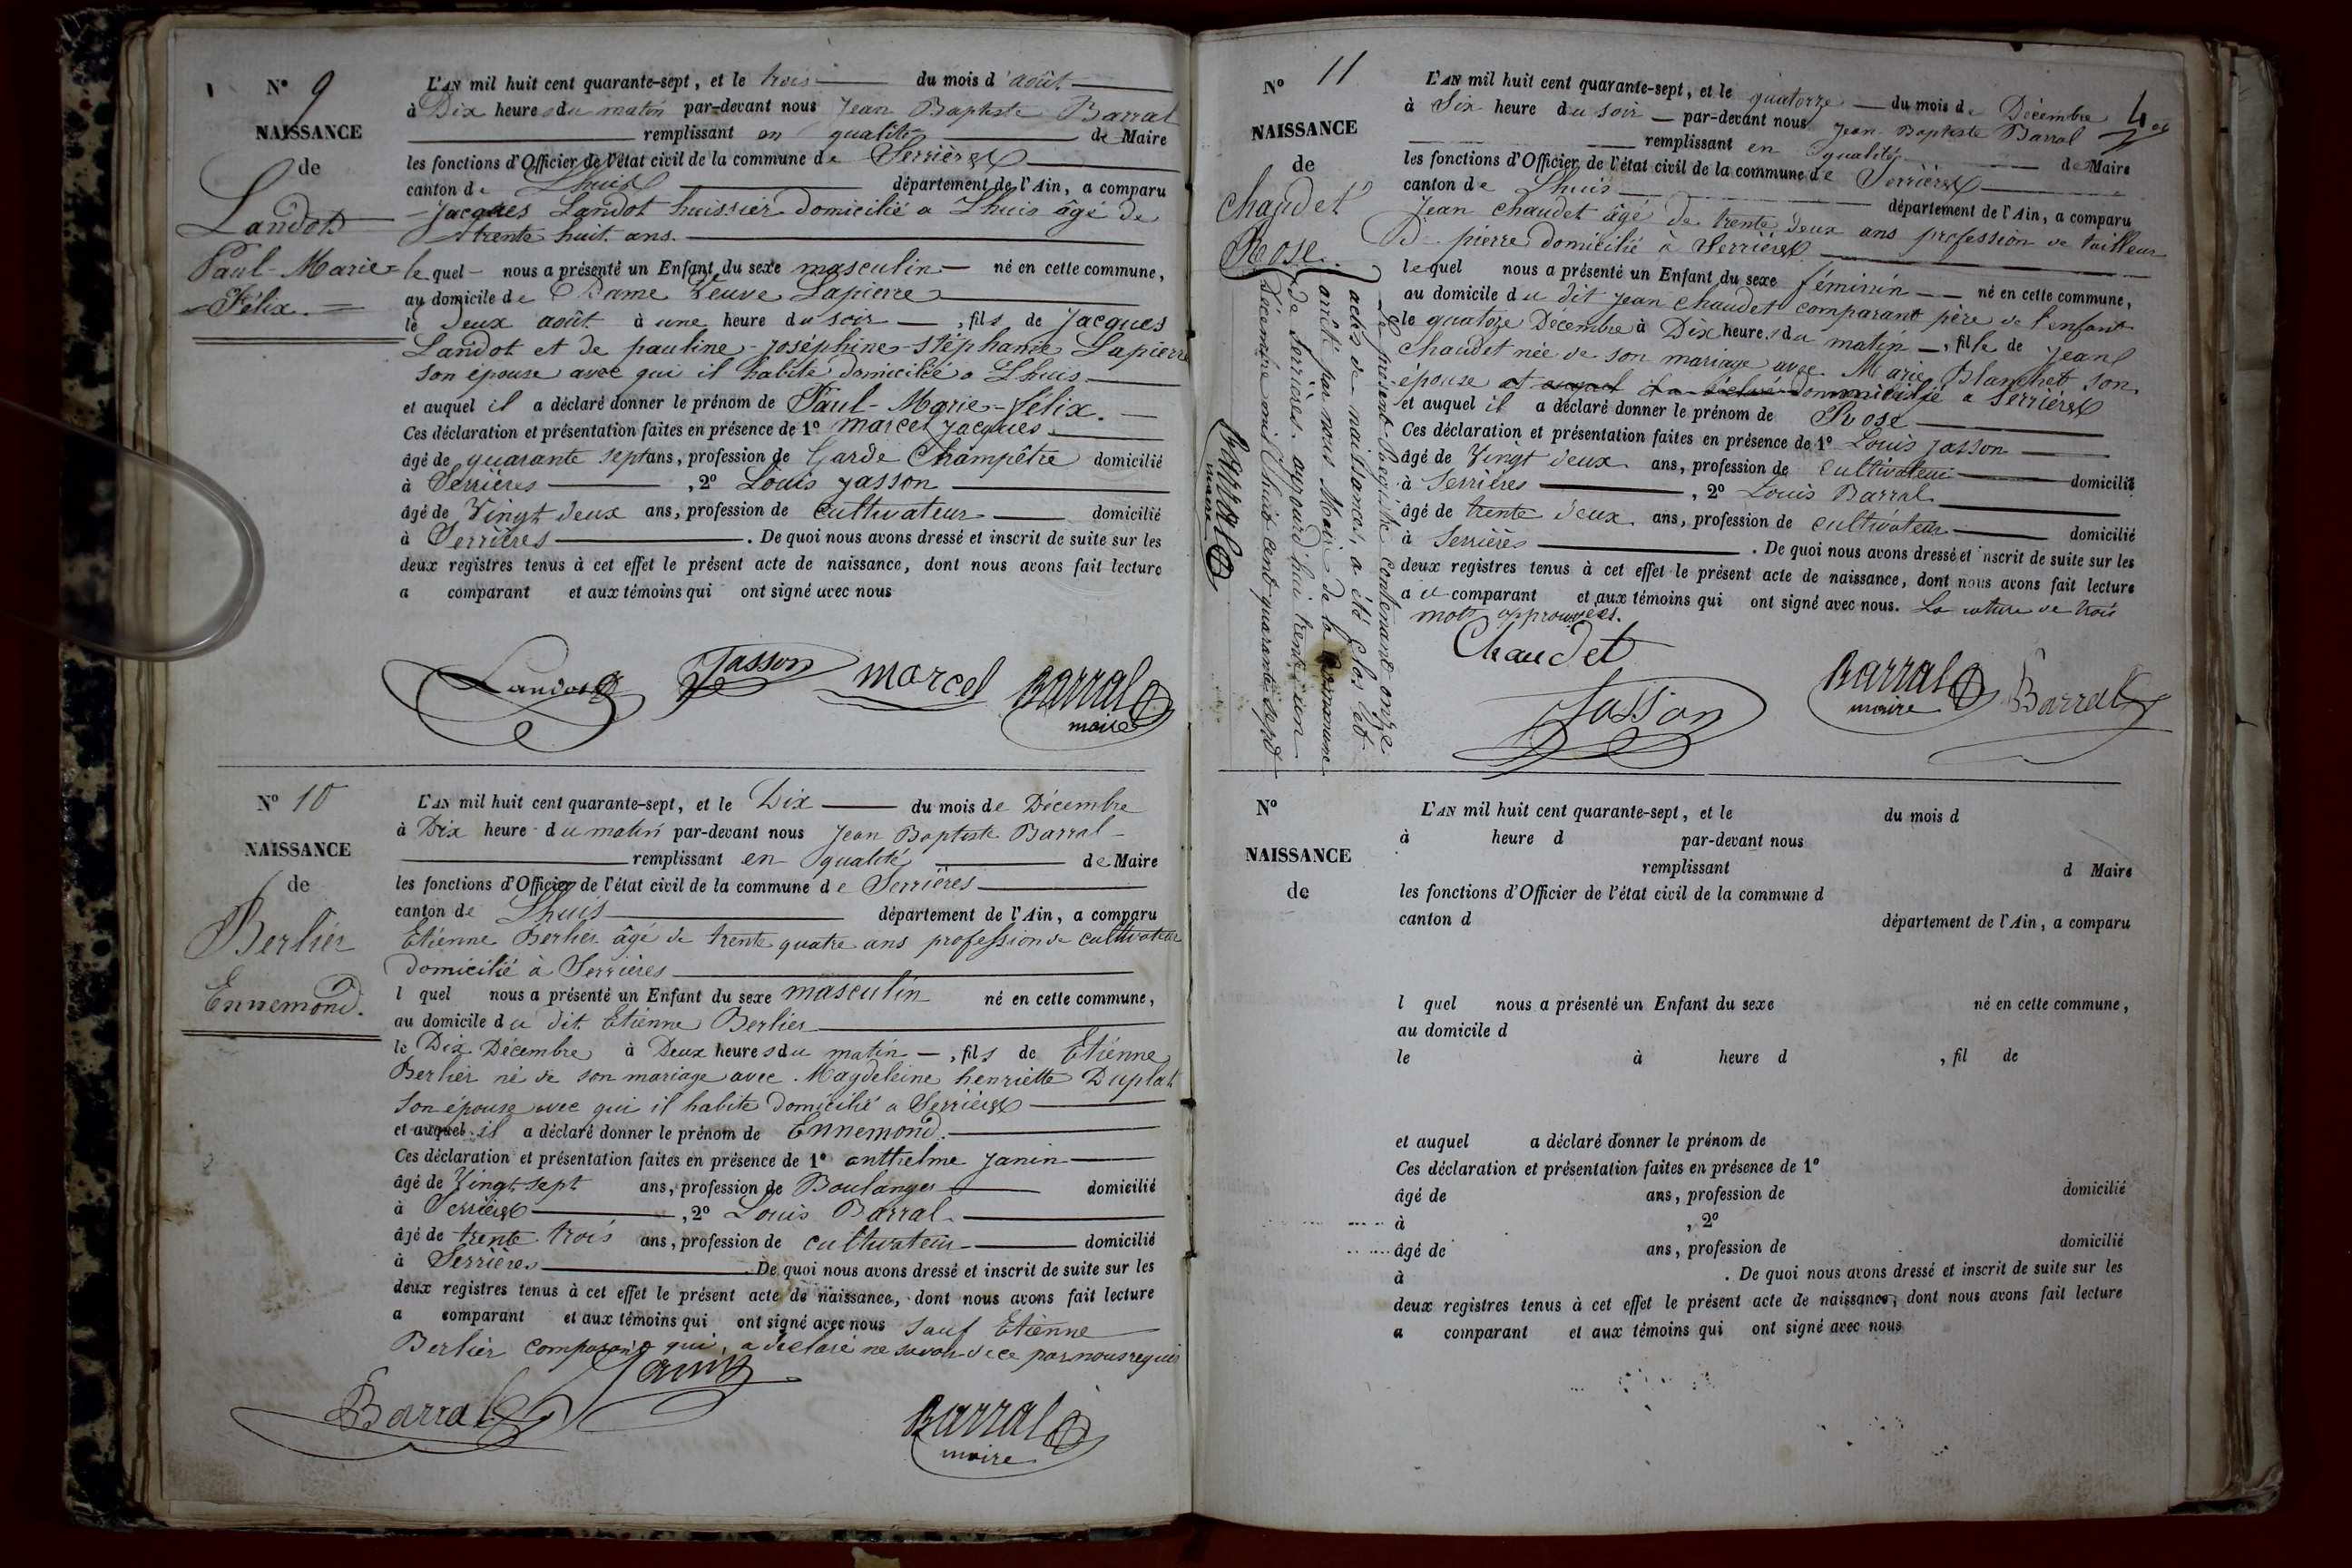 N° 9
NAISSANCE
de
Landot
Paul-Marie-
Félix.
L'AN mil huit cent quarante-sept, et le trois du mois d'août
à Dix heures du matin par-devant nous Jean Baptiste Barral
remplissant en qualité de Maire
les fonctions d'Officier de l'état civil de la commune de Serrières
canton de Lhuis département de l'Ain, a comparu
Jacques Landot huissier domicilié a Lhuis âgé de
trente huit ans.
le quel nous a présenté un Enfant du sexe masculin né en cette commune,
au domicile de Dame Veuve Lapierre
le deux août à une heure du soir, fils de Jacques
Landot et de pauline-Joséphine-stéphanie Lapierre
son épouse avec qui il habite domicilié a Lhuis
et auquel il a déclaré donner le prénom de Paul-Marie-félix.
Ces déclaration et présentation faites en présence de 1° marcel Jacques
âgé de quarante sept ans, profession de Garde Champêtre domicilié
à Serrieres, 2° Louis Jasson
âgé de Vingt deux ans, profession de cultivateur domicilié
à Serrières. De quoi nous avons dressé et inscrit de suite sur les
deux registres tenus à cet effet le présent acte de naissance, dont nous avons fait lecture
a comparant et aux témoins qui ont signé avec nous
Landot Jasson marcel Barral
maire
N° 10
NAISSANCE
de
Berlier
Ennemond.
L'AN mil huit cent quarante-sept, et le Dix du mois de Décembre
à Dix heure du matin par-devant nous Jean Baptiste Barral
remplissant en qualité de Maire
les fonctions d'Officier de l'état civil de la commune de Serrières
canton de Lhuis département de l'Ain, a comparu
Etienne Berlier âgé de trente quatre ans profession de cultivateur
domicilié à Serrières
l quel nous a présenté un Enfant du sexe masculin né en cette commune,
au domicile du dit Etienne Berlier
le Dix Décembre à Deux heures du matin, fils de Etienne
Berlier né de son mariage avec Magdeleine henriette Duplat
son épouse avec qui il habite domicilié a Serrières
et auquel il a déclaré donner le prénom de Ennemond.
Ces déclaration et présentation faites en présence de 1° anthelme Janin
âgé de Vingt sept ans, profession de Boulanger domicilié
à Serrières, 2° Louis Barral
âgé de trente trois ans, profession de cultivateur domicilié
à Serrières. De quoi nous avons dressé et inscrit de suite sur les
deux registres tenus à cet effet le présent acte de naissance, dont nous avons fait lecture
a comparant et aux témoins qui ont signé avec nous sauf Etienne
Berlier comparant qui a déclaré ne savoir de ce par nous requis
Janin
Barral Barral
maire
N° 11
NAISSANCE
de
Chaudet
Rose.
L'AN mil huit cent quarante-sept, et le quatorze du mois de Décembre
à Six heure du soir par-devant nous Jean Baptiste Barral
remplissant en qualité de Maire
les fonctions d'Officier de l'état civil de la commune de Serrières
canton de Lhuis département de l'Ain, a comparu
Jean chaudet âgé de trente deux ans profession de tailleur
De pierre domicilié à Serrières
lequel nous a présenté un Enfant du sexe féminin né en cette commune,
au domicile du dit Jean chaudet comparant père de l'enfant
le quatorze Décembre à Dix heures du matin, fille de Jean
chaudet née de son mariage avec Marie Blanchet son
épouse domicilié a Serrières
et auquel il a déclaré donner le prénom de Rose
Ces déclaration et présentation faites en présence de 1° Louis Jasson
âgé de Vingt deux ans, profession de cultivateur domicilié
à Serrières, 2° Louis Barral
âgé de trente deux ans, profession de cultivateur domicilié
à Serrières. De quoi nous avons dressé et inscrit de suite sur les
deux registres tenus à cet effet le présent acte de naissance, dont nous avons fait lecture
a u comparant et aux témoins qui ont signé avec nous. La rature de trois
mots approuvées.
Chaudet
Jasson Barral Barral
maire
Le présent Registre contenant onze
actes de naissances, a été clos et
arrêté par nous Maire de la Commune
de Serrières, aujourd'hui trente un
décembre mil huit cent quarante-sept
Barral
maire
N°
NAISSANCE
de
L'AN mil huit cent quarante-sept, et le du mois d
à heure d par-devant nous
remplissant d Maire
les fonctions d'Officier de l'état civil de la commune d
canton d département de l'Ain, a comparu
l quel nous a présenté un Enfant du sexe né en cette commune,
au domicile d
le à heure d , fil de
et auquel a déclaré donner le prénom de
Ces déclaration et présentation faites en présence de 1°
âgé de ans, profession de domicilié
à , 2°
âgé de ans, profession de domicilié
à . De quoi nous avons dressé et inscrit de suite sur les
deux registres tenus à cet effet le présent acte de naissance, dont nous avons fait lecture
a comparant et aux témoins qui ont signé avec nous